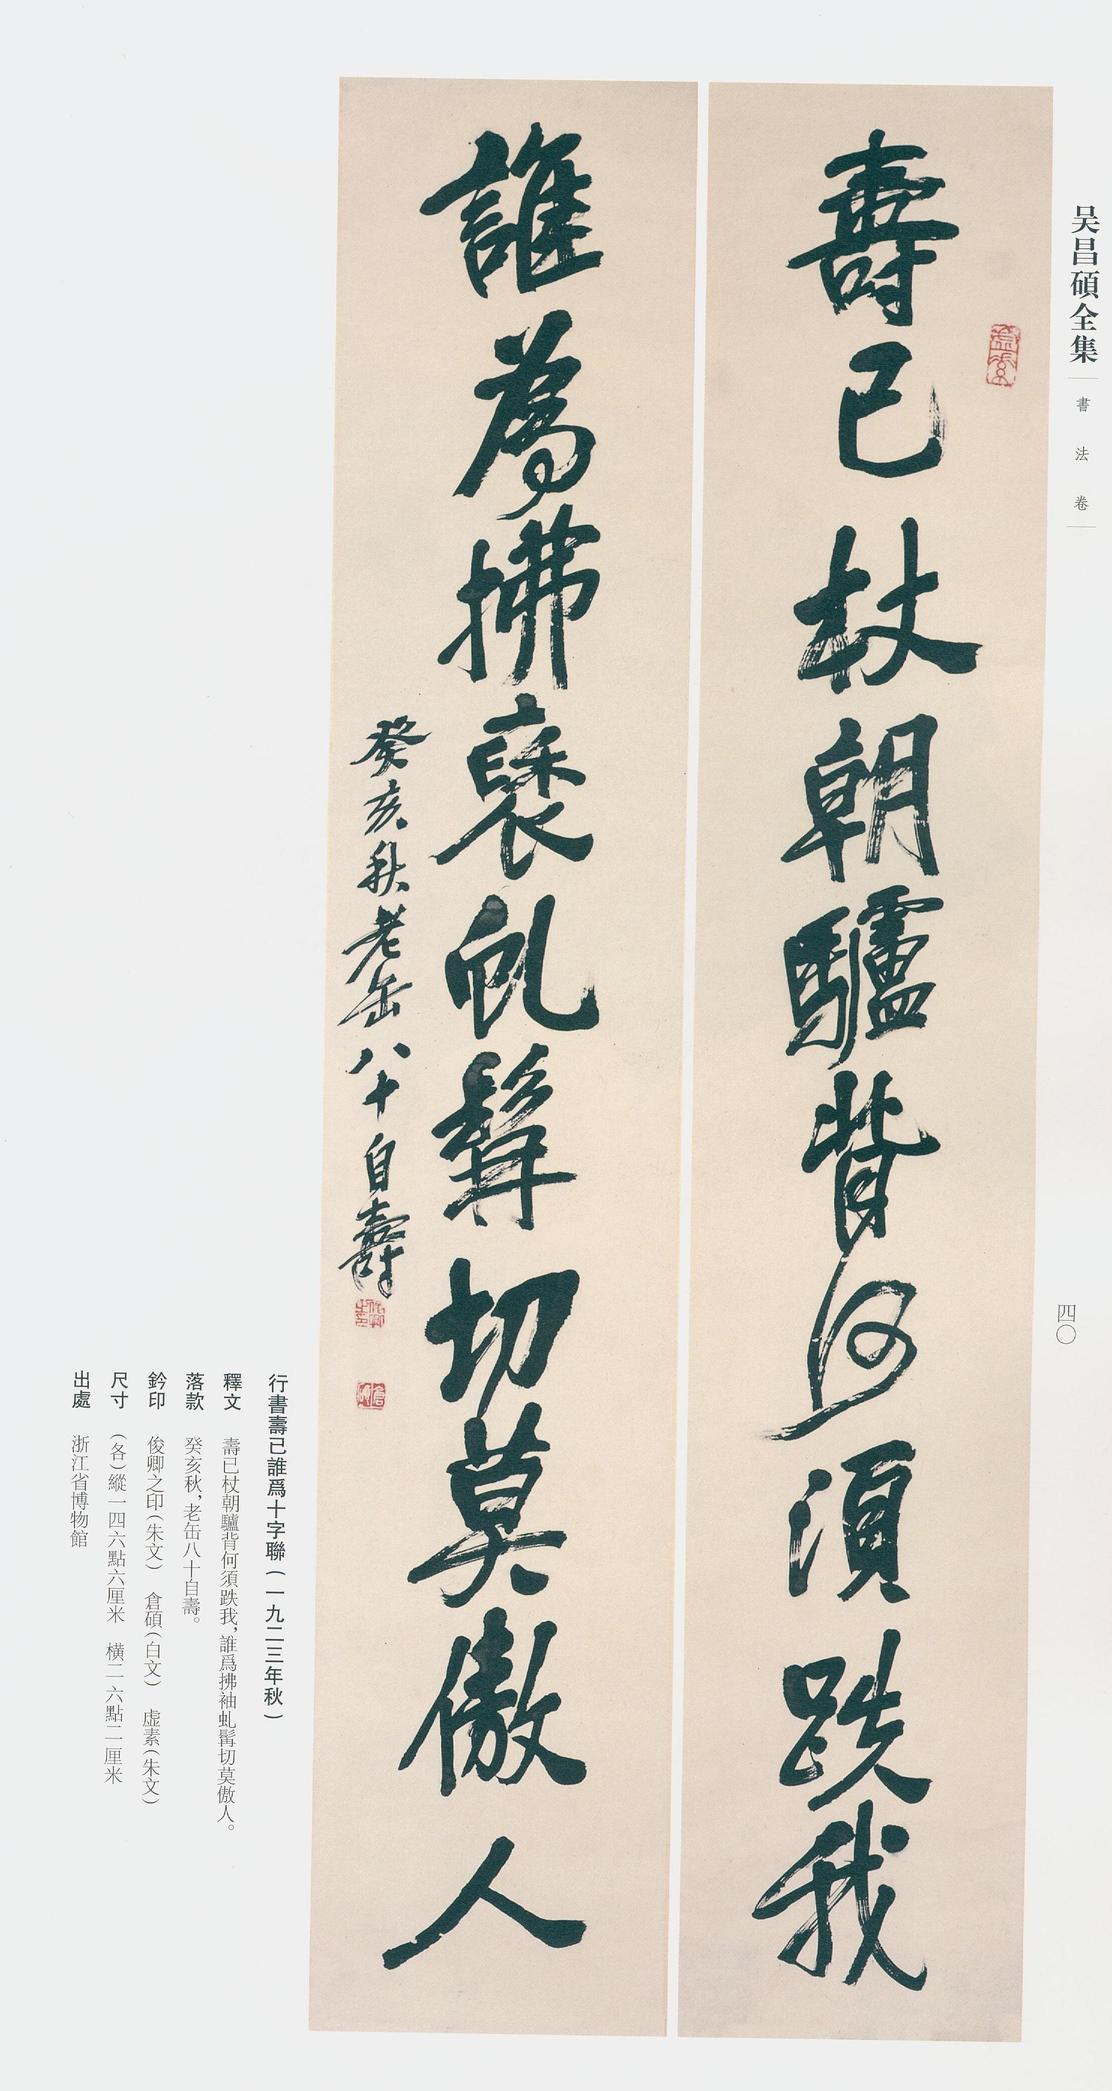 吴昌碩全集
書法卷
四〇
壽已杖朝驢背何須跌我
誰為拂褎虬髯切莫傲人
癸亥秋老缶八十自壽
行書壽已誰爲十字聯(一九二三年秋)
釋文 壽已杖朝驢背何須跌我,誰爲拂袖虬髯切莫傲人。
落款 癸亥秋,老缶八十自壽。
鈐印 俊卿之印(朱文) 倉碩(白文) 虚素(朱文)
尺寸 (各)縱一四六點六厘米 横二六點二厘米
出處 浙江省博物館